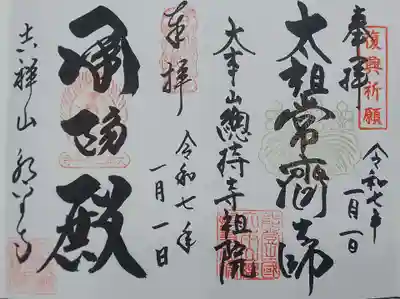 復興祈願
奉拝
令和七年
一月一日
太祖常濟大師
大本山總持寺祖院
奉拝
令和七年
一月一日
承陽殿
吉祥山 永平寺